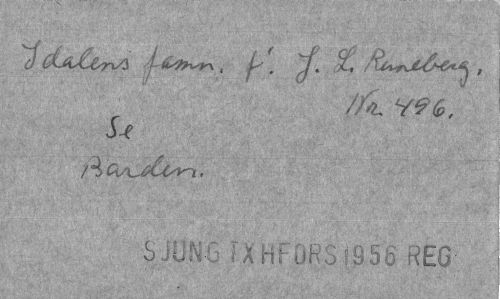 I dalens famn. f. J. L. Runeberg.
Nr. 496.
Se
Barden.
SJUNG TXHFORS 1956 REG